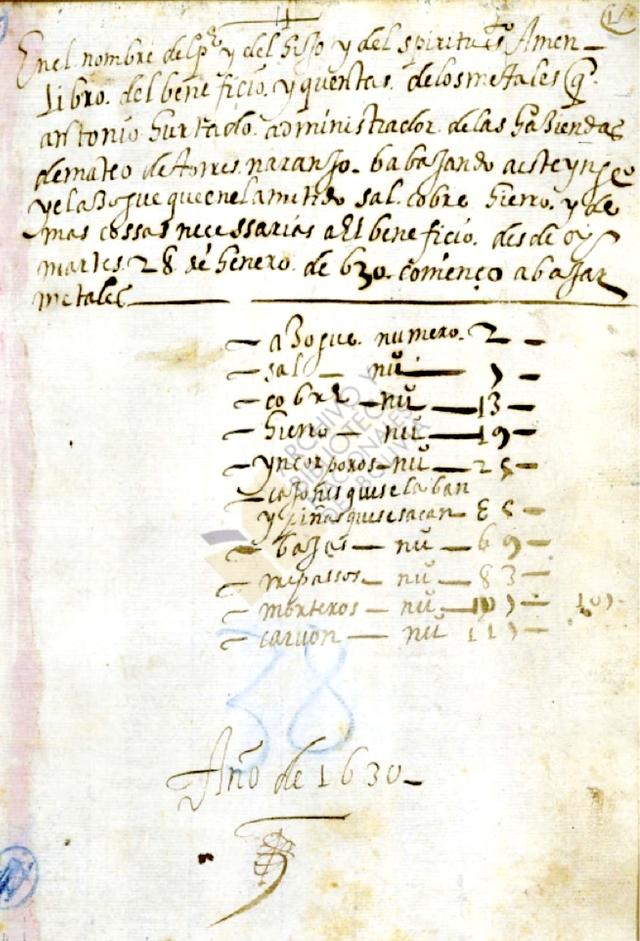 1
En el nombre del pe y del hijo y del spiritu sto Amen
libro. del bene ficio. y quentas. de los metales q.
antonio hurtado. administrador de las haziendas
de mateo de torres. naranjo. ba bajando a este ynjeo
y el azogue que en el a metido sal. cobre hierro. y de
mas cossas necessarias a el bene ficio. desde oy
martes. 28 de henero. de 630. començo a bajar
metales
azogue. numero. 2
sal nu 7
cobre nu 13
hierro nu 19
yncorporos nu 25
cajones que se laban
y piñas que se sacan 85
bajas nu 69
rrepassos nu 83
morteros nu 107 107
carvon nu 117
38
ARCHIVO Y
BIBLIOTECA
NACIONALES
DE BOLIVIA
Año de 1630